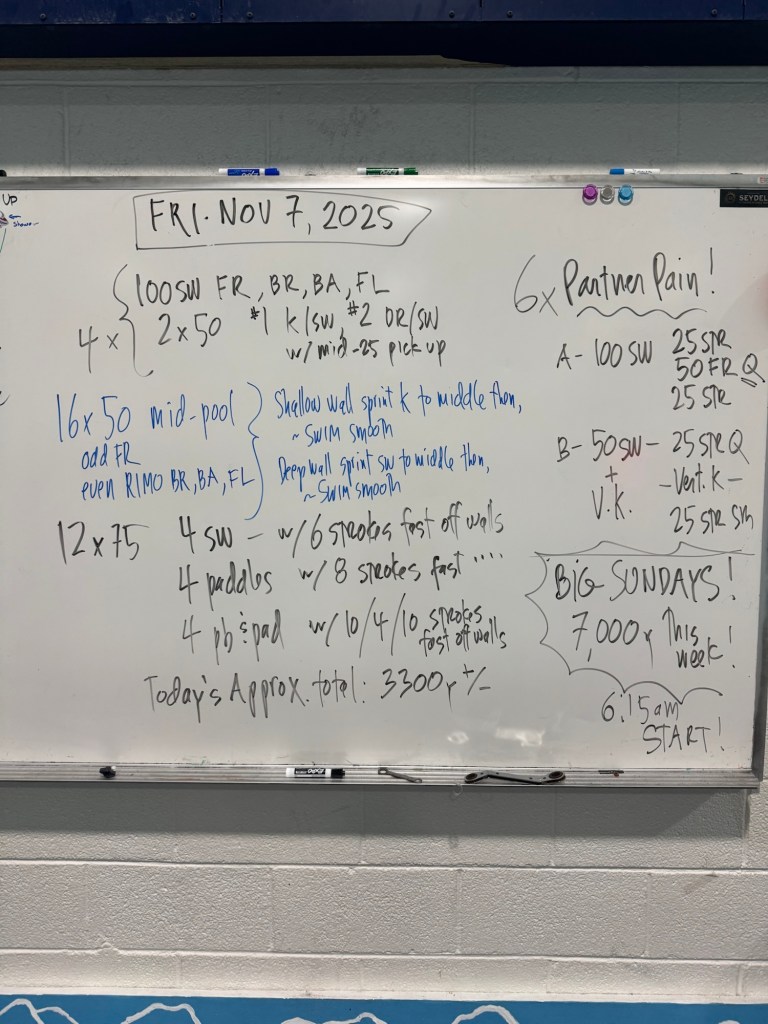 UP
Shower
SEYDEL
FRI. NOV 7, 2025
4x { 100 SW FR, BR, BA, FL
2x50 #1 k/sw, #2 DR/SW
w/ mid-25 pick up
16x50 mid-pool } Shallow wall sprint k to middle then,
~ SWIM smooth
odd FR
even RIMO BR, BA, FL
Deep wall sprint sw to middle then,
~ Swim smooth
12x75 4 SW - w/ 6 strokes fast off walls
4 paddles w/ 8 strokes fast ....
4 pb & pad w/ 10/4/10 strokes
fast off walls
Today's Approx. total: 3300y +/-
6x Partner Pain!
A- 100 SW 25 STR
50 FR Q
25 STR
B- 50 SW - 25 STR Q
+ - Vert. k -
V.K. 25 STR Sm
BIG SUNDAYS!
7,000y This
week!
6:15am
START!
EXPO